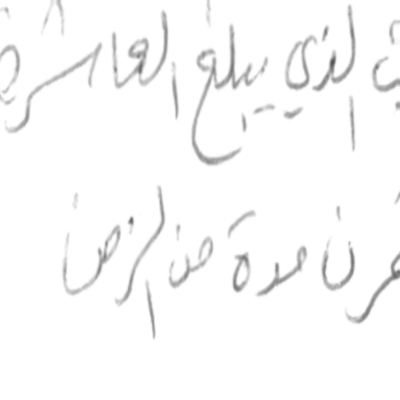 الذي يبلغ العاشرة
قرن مدة من الزمن